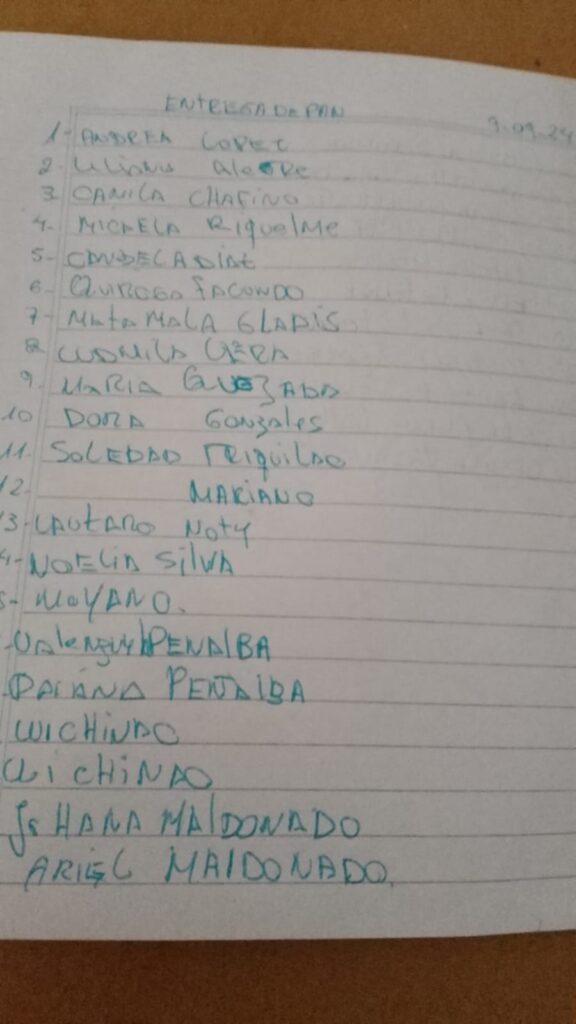 ENTREGA DE PAN
9.09.24
1- ANDREA LOPEZ
2- Liliana alegre
3- CAMILA CHAFINO
4- MICAELA RIquelMe
5- CANDELA DIAZ
6- QUIROGA FACUNDO
7- MATA MALA GLADIS
8 LUDMILA VERA
9- MARIA QUEZADA
10 DORA Gonzales
11- SOLEDAD TRIQUILAO
12- MARIANO
13- LAUTARO NOTY
4- NOELIA SILVA
5- MOYANO.
PENALBA
DAIANA PENALBA
WICHINAO
WICHINAO
JoHANA MALDONADO
ARIEL MALDONADO.